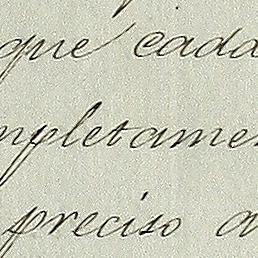 que cada
mpletamen
preciso a